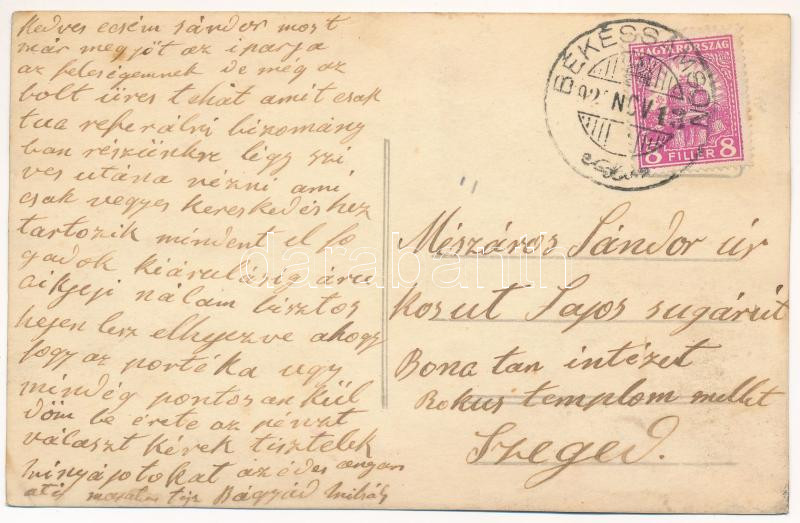 Kedves ecsém sándor most
már megjöt az iparja
az feleségemnek de még az
bolt üres tehát amit csak
tua referálni bizomány
ban részünkre légy szi
ves utána nézni ami
csak vegyes kereskedéshez
tartozik mindent el fo
gadok kiárulásig áru
nálam bisztos
hejen lesz elhejezve ahogy
fogy az portéka ugy
mindég pontosan kül
döm be érete az pénzt
választ kérek tisztelek
az édes
Bágyud Mihály
BÉKÉSSÁMSON
92 NOV 12
MAGYARORSZÁG
8 FILLÉR 8
Mészáros Sándor úr
Kosut Lajos sugárút
Bona tan intézet
Rokus templom mellet
Szeged.
darabanth